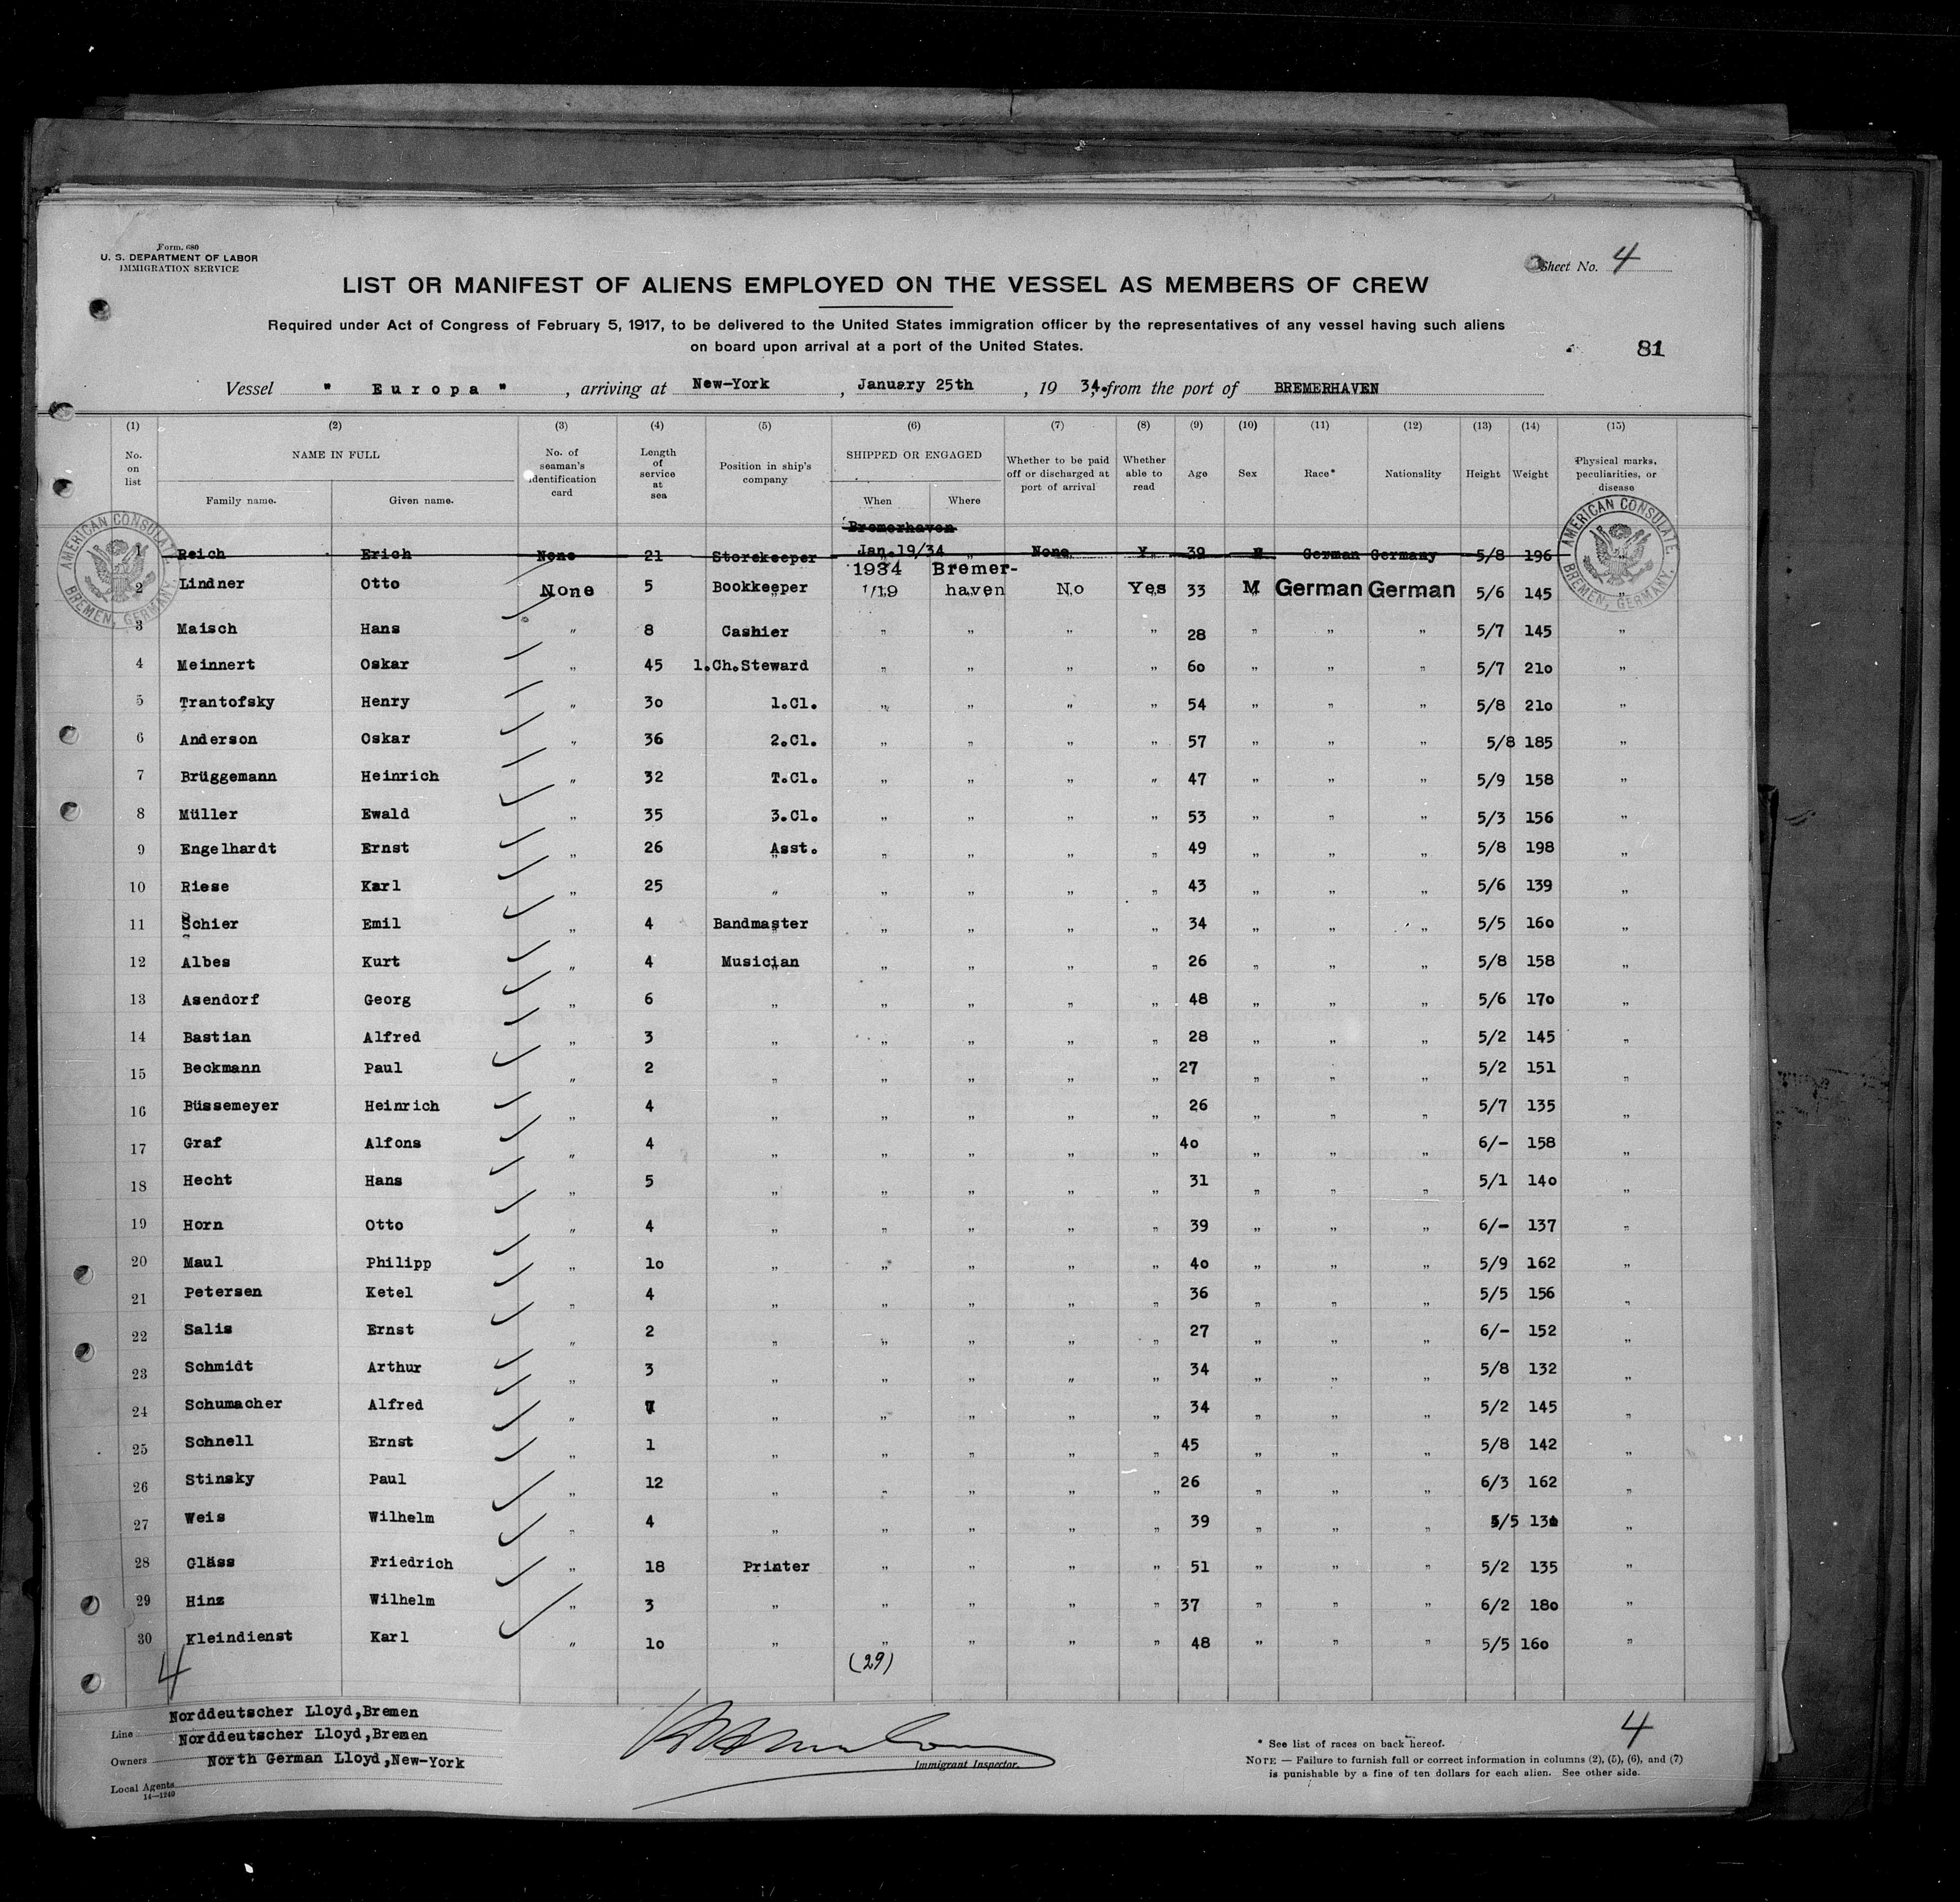 Form. 680
U. S. DEPARTMENT OF LABOR
IMMIGRATION SERVICE
Sheet No. 4
LIST OR MANIFEST OF ALIENS EMPLOYED ON THE VESSEL AS MEMBERS OF CREW
Required under Act of Congress of February 5, 1917, to be delivered to the United States immigration officer by the representatives of any vessel having such aliens
on board upon arrival at a port of the United States.
81
Vessel " Europa " , arriving at New-York , January 25th , 19 34. from the port of BREMERHAVEN
(1) (2) (3) (4) (5) (6) (7) (8) (9) (10) (11) (12) (13) (14) (15)
No. on list NAME IN FULL Family name. Given name. No. of seaman's identification card Length of service at sea Position in ship's company SHIPPED OR ENGAGED When Where Whether to be paid off or discharged at port of arrival Whether able to read Age Sex Race* Nationality Height Weight Physical marks, peculiarities, or disease
AMERICAN CONSULATE BREMEN, GERMANY.
AMERICAN CONSULATE. BREMEN, GERMANY.
Bremerhaven
1 Reich Erich None 21 Storekeeper Jan.19/34 „ None Y 39 M German Germany 5/8 196 „
2 Lindner Otto None 5 Bookkeeper 1934 1/19 Bremer-haven No Yes 33 M German German 5/6 145 „
3 Maisch Hans „ 8 Cashier „ „ „ „ 28 „ „ „ 5/7 145 „
4 Meinnert Oskar „ 45 1.Ch.Steward „ „ „ „ 60 „ „ „ 5/7 210 „
5 Trantofsky Henry „ 30 1.Cl. „ „ „ „ 54 „ „ „ 5/8 210 „
6 Anderson Oskar „ 36 2.Cl. „ „ „ „ 57 „ „ „ 5/8 185 „
7 Brüggemann Heinrich „ 32 T.Cl. „ „ „ „ 47 „ „ „ 5/9 158 „
8 Müller Ewald „ 35 3.Cl. „ „ „ „ 53 „ „ „ 5/3 156 „
9 Engelhardt Ernst „ 26 Asst. „ „ „ „ 49 „ „ „ 5/8 198 „
10 Riese Karl „ 25 „ „ „ „ „ 43 „ „ „ 5/6 139 „
11 Schier Emil „ 4 Bandmaster „ „ „ „ 34 „ „ „ 5/5 160 „
12 Albes Kurt „ 4 Musician „ „ „ „ 26 „ „ „ 5/8 158 „
13 Asendorf Georg „ 6 „ „ „ „ „ 48 „ „ „ 5/6 170 „
14 Bastian Alfred „ 3 „ „ „ „ „ 28 „ „ „ 5/2 145 „
15 Beckmann Paul „ 2 „ „ „ „ „ 27 „ „ „ 5/2 151 „
16 Büssemeyer Heinrich „ 4 „ „ „ „ „ 26 „ „ „ 5/7 135 „
17 Graf Alfons „ 4 „ „ „ „ „ 40 „ „ „ 6/- 158 „
18 Hecht Hans „ 5 „ „ „ „ „ 31 „ „ „ 5/1 140 „
19 Horn Otto „ 4 „ „ „ „ „ 39 „ „ „ 6/- 137 „
20 Maul Philipp „ 10 „ „ „ „ „ 40 „ „ „ 5/9 162 „
21 Petersen Ketel „ 4 „ „ „ „ „ 36 „ „ „ 5/5 156 „
22 Salis Ernst „ 2 „ „ „ „ „ 27 „ „ „ 6/- 152 „
23 Schmidt Arthur „ 3 „ „ „ „ „ 34 „ „ „ 5/8 132 „
24 Schumacher Alfred „ „ „ „ „ „ 34 „ „ „ 5/2 145 „
25 Schnell Ernst „ 1 „ „ „ „ „ 45 „ „ „ 5/8 142 „
26 Stinsky Paul „ 12 „ „ „ „ „ 26 „ „ „ 6/3 162 „
27 Weis Wilhelm „ 4 „ „ „ „ „ 39 „ „ „ 5/5 „
28 Gläss Friedrich „ 18 Printer „ „ „ „ 51 „ „ „ 5/2 135 „
29 Hinz Wilhelm „ 3 „ „ „ „ „ 37 „ „ „ 6/2 180 „
30 Kleindienst Karl „ 10 „ „ „ „ „ 48 „ „ „ 5/5 160 „
4 (29)
Line Norddeutscher Lloyd,Bremen
Owners Norddeutscher Lloyd,Bremen
Local Agents North German Lloyd,New-York
14—1240
Immigrant Inspector.
4
* See list of races on back hereof.
NOTE — Failure to furnish full or correct information in columns (2), (5), (6), and (7)
is punishable by a fine of ten dollars for each alien. See other side.